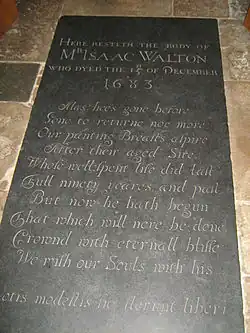 HERE RESTETH THE BODY OF
Mr ISAAC WALTON
WHO DYED THE 15th OF DECEMBER
1683
Alas hee's gone before
Gone to returne noe more
Our panting Breasts aspire
After their aged Sire
Whose well spent life did last
Full ninety yeares and past
But now he hath begun
That which will nere be done
Crownd with eternall blisse
We wish our Souls with his
otis modestis sic flerunt liberi